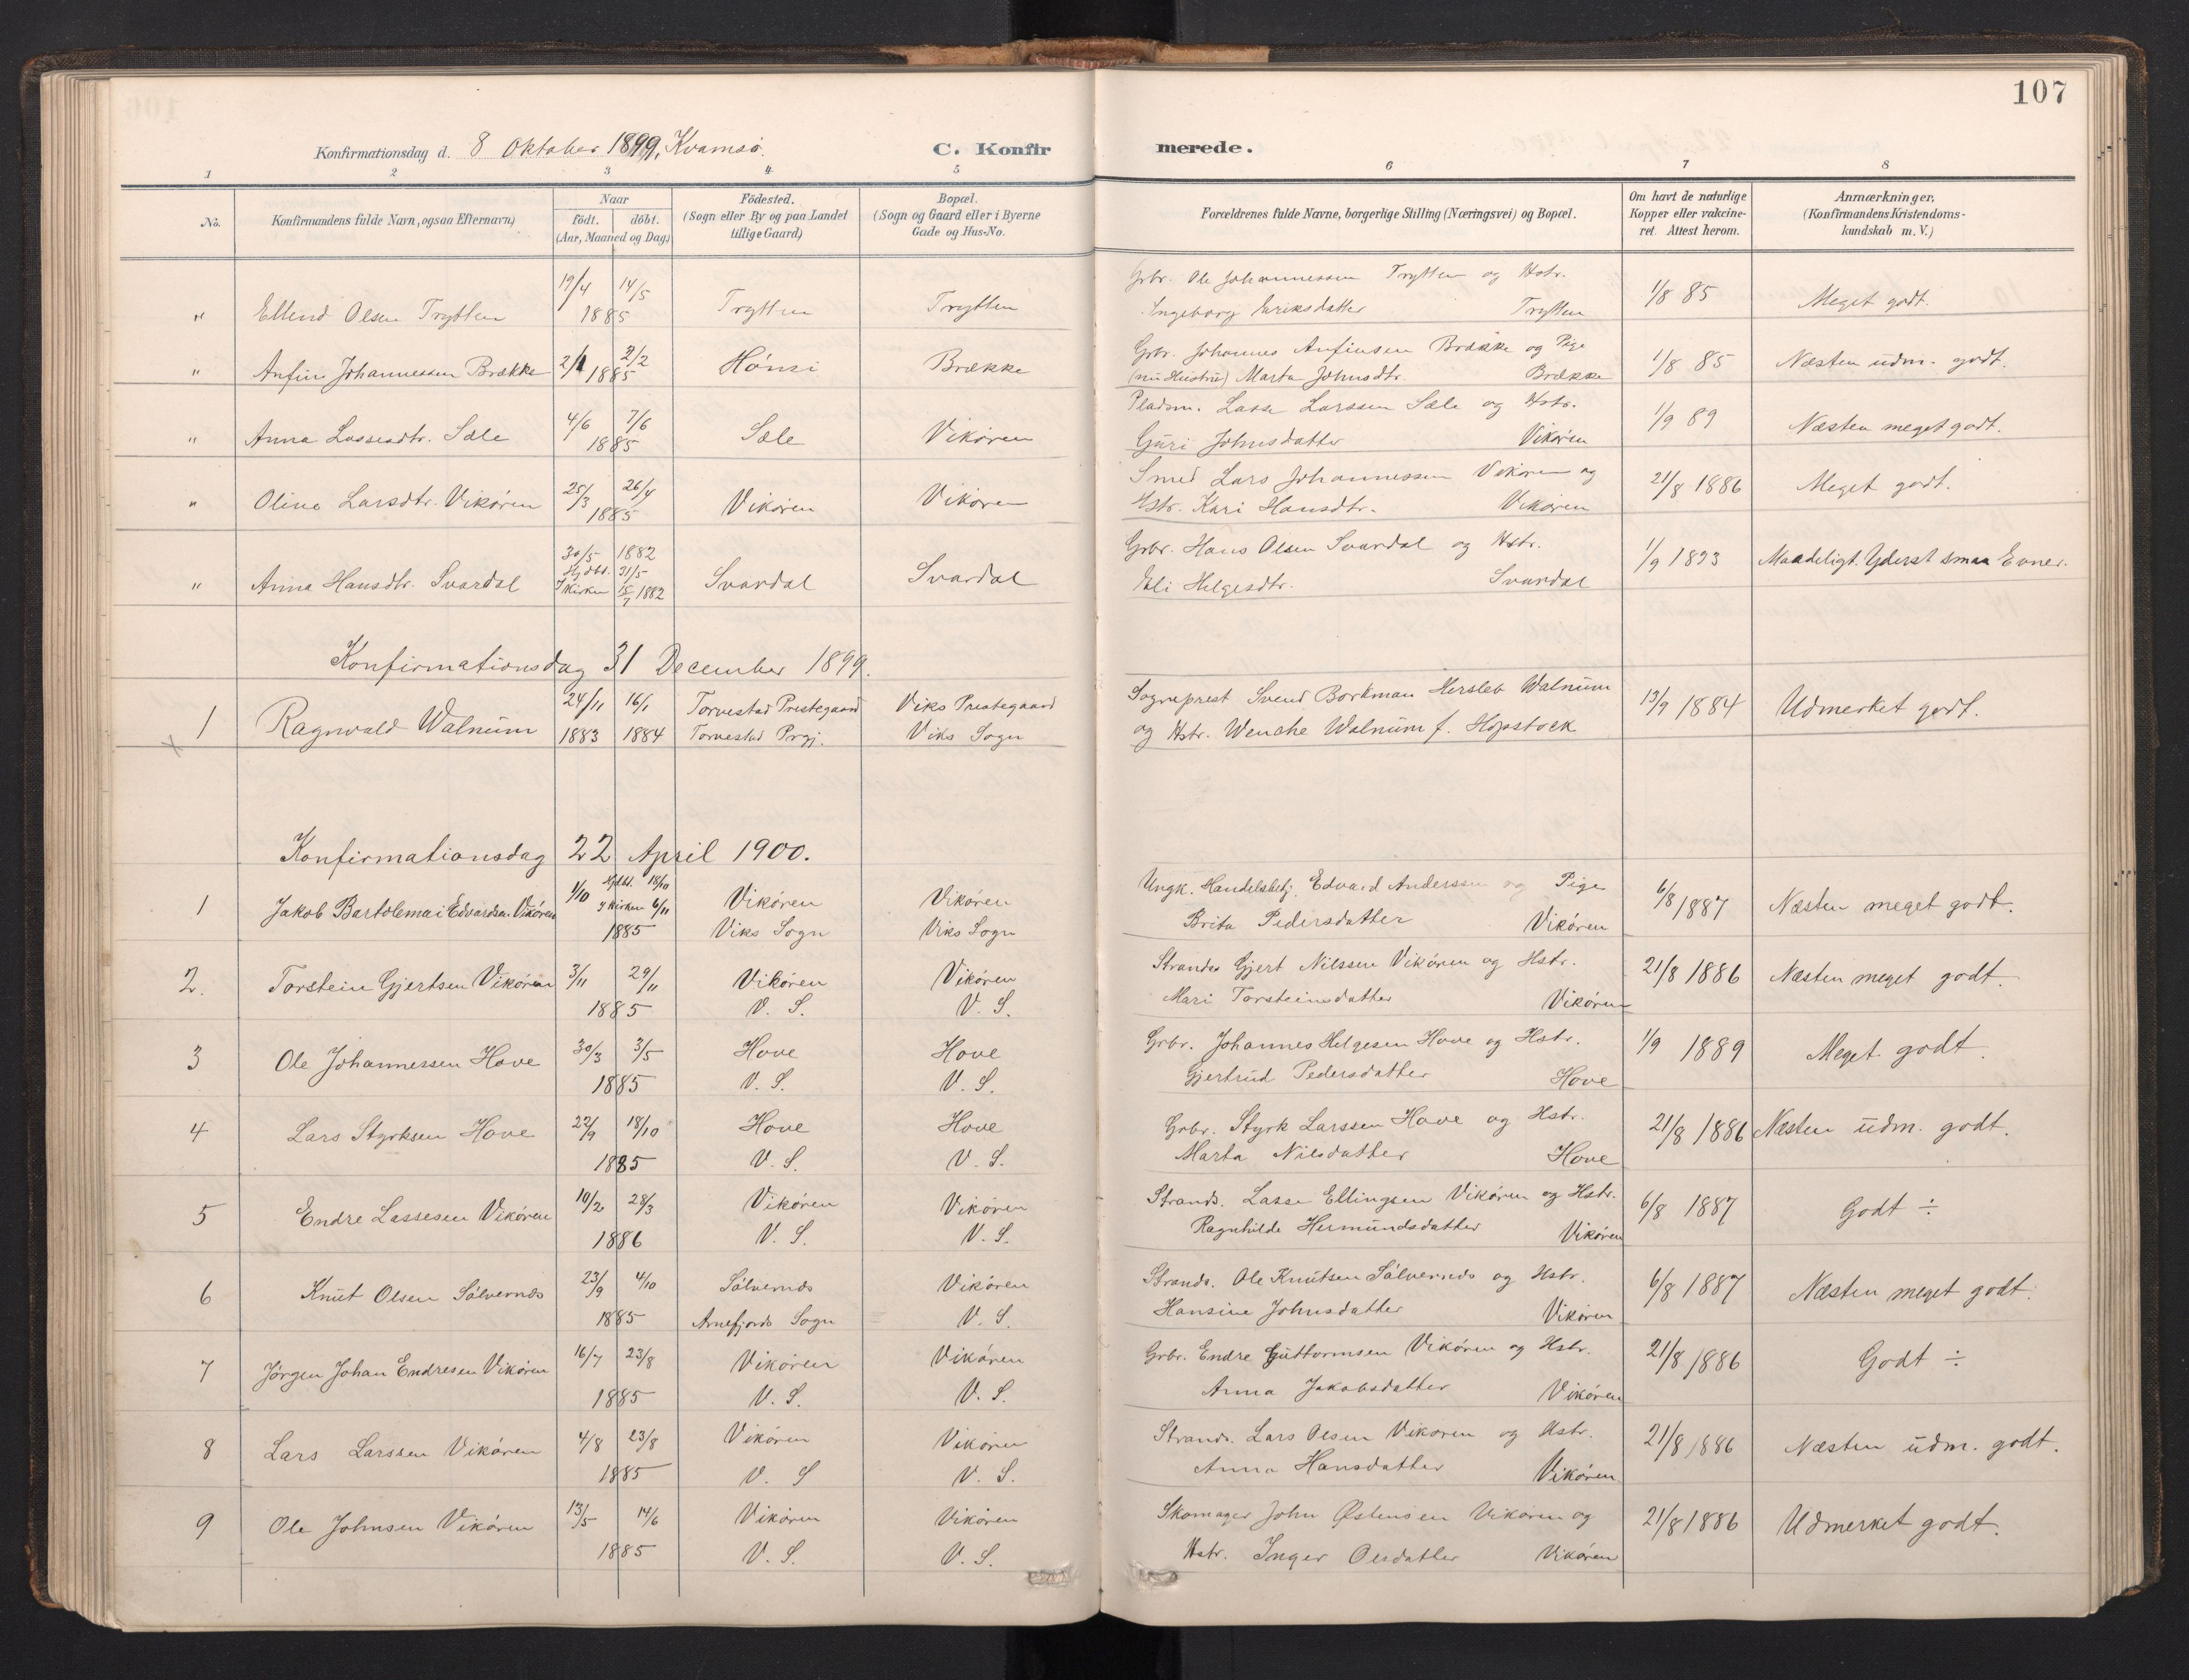 107
Konfirmationsdag d. 8 Oktober 1899, Kvamsø.
C. Konfirmerede.
1 2 3 4 5 6 7 8
No.
Konfirmandens fulde Navn, ogsaa Efternavn)
Naar
födt. döbt.
(Aar, Maaned og Dag)
Födested.
(Sogn eller By og paa Landet
tillige Gaard)
Bopæl.
(Sogn og Gaard eller i Byerne
Gade og Hus-No.
Forældrenes fulde Navne, borgerlige Stilling (Næringsvei) og Bopæl.
Om havt de naturlige
Kopper eller vakcine-
ret. Attest herom.
Anmærkninger,
(Konfirmandens Kristendoms-
kundskab m. V.)
" Ellend Olsen Trytten 19/4 14/5 1885 Trytten Trytten
Grbr. Ole Johannessen Trytten og Hstr.
Ingeborg Eriksdatter Trytten
1/8 85 Meget godt.
" Anfin Johannessen Brække 2/1 2/2 1885 Hønsi Brække
Grbr. Johannes Anfinsen Brække og Pige
(nu Hustru) Marta Johnsdtr. Brække
1/8 85 Næsten udm. godt.
" Anna Lassesdtr. Sæle 4/6 7/6 1885 Sæle Vikøren
Pladsm. Lasse Larssen Sæle og Hstr.
Guri Johnsdatter Vikøren
1/9 89 Næsten meget godt.
" Oline Larsdtr. Vikøren 25/3 26/4 1885 Vikøren Vikøren
Smed Lars Johannessen Vikøren og
Hstr. Kari Hansdtr. Vikøren
21/8 1886 Meget godt.
" Anna Hansdtr. Svardal 30/5 1882
Hjdbt. 31/5
I Kirken 15/7 1882 Svardal Svardal
Grbr. Hans Olsen Svardal og Hstr.
Eli Helgesdtr. Svardal
1/9 1893 Maadeligt. Yderst smaa Evner.
Konfirmationsdag 31 December 1899.
1 Ragnvald Walnum 24/11 1883 16/1 1884
Torvestad Prestegaard
Torvestad Prgj.
Viks Prestegaard
Viks Sogn
Sogneprest Svend Borkman Hersleb Walnum
og Hstr. Wenche Walnum f. Hopstock
13/9 1884 Udmerket godt.
Konfirmationsdag 22 April 1900.
1 Jakob Bartolemai Edvardsen Vikøren 1/10 Hjdbt. 18/10
I Kirken 6/11
1885 Vikøren Viks Sogn Vikøren Viks Sogn
Ungk. Handelsbetj. Edvard Anderssen og Pige
Brita Pedersdatter Vikøren
6/8 1887 Næsten meget godt.
2. Torstein Gjertsen Vikøren 3/11 29/11 1885 Vikøren V. S. Vikøren V. S.
Strands. Gjert Nilssen Vikøren og Hstr.
Mari Torsteinsdatter Vikøren
21/8 1886 Næsten meget godt.
3 Ole Johannessen Hove 30/3 3/5 1885 Hove V. S. Hove V. S.
Grbr. Johannes Helgesen Hove og Hstr.
Gjertrud Pedersdatter Hove
1/9 1889 Meget godt.
4 Lars Styrksen Hove 22/9 18/10 1885 Hove V. S. Hove V. S.
Grbr. Styrk Larssen Hove og Hstr.
Marta Nilsdatter Hove
21/8 1886 Næsten udm. godt.
5 Endre Lassesen Vikøren 10/2 28/3 1886 Vikøren V. S. Vikøren V. S.
Strands. Lasse Ellingsen Vikøren og Hstr.
Ragnhilde Hermundsdatter Vikøren
6/8 1887 Godt ÷
6 Knut Olsen Sålvernds 23/9 4/10 1885 Sålvernds Arnefjords Sogn Vikøren V. S.
Strands. Ole Knutsen Sålvernds og Hstr.
Hansine Johnsdatter Vikøren
6/8 1887 Næsten meget godt.
7 Jørgen Johan Endresen Vikøren 16/7 23/8 1885 Vikøren V. S. Vikøren V. S.
Grbr. Endre Guttormsen Vikøren og Hstr.
Anna Jakobsdatter Vikøren
21/8 1886 Godt ÷
8 Lars Larssen Vikøren 4/8 23/8 1885 Vikøren V. S Vikøren V. S.
Strands. Lars Olsen Vikøren og Hstr.
Anna Hansdatter Vikøren
21/8 1886 Næsten udm. godt.
9 Ole Johnsen Vikøren 13/5 14/6 1885 Vikøren V. S. Vikøren V. S.
Skomager John Østensen Vikøren og
Hstr. Inger Olsdatter Vikøren
21/8 1886 Udmerket godt.